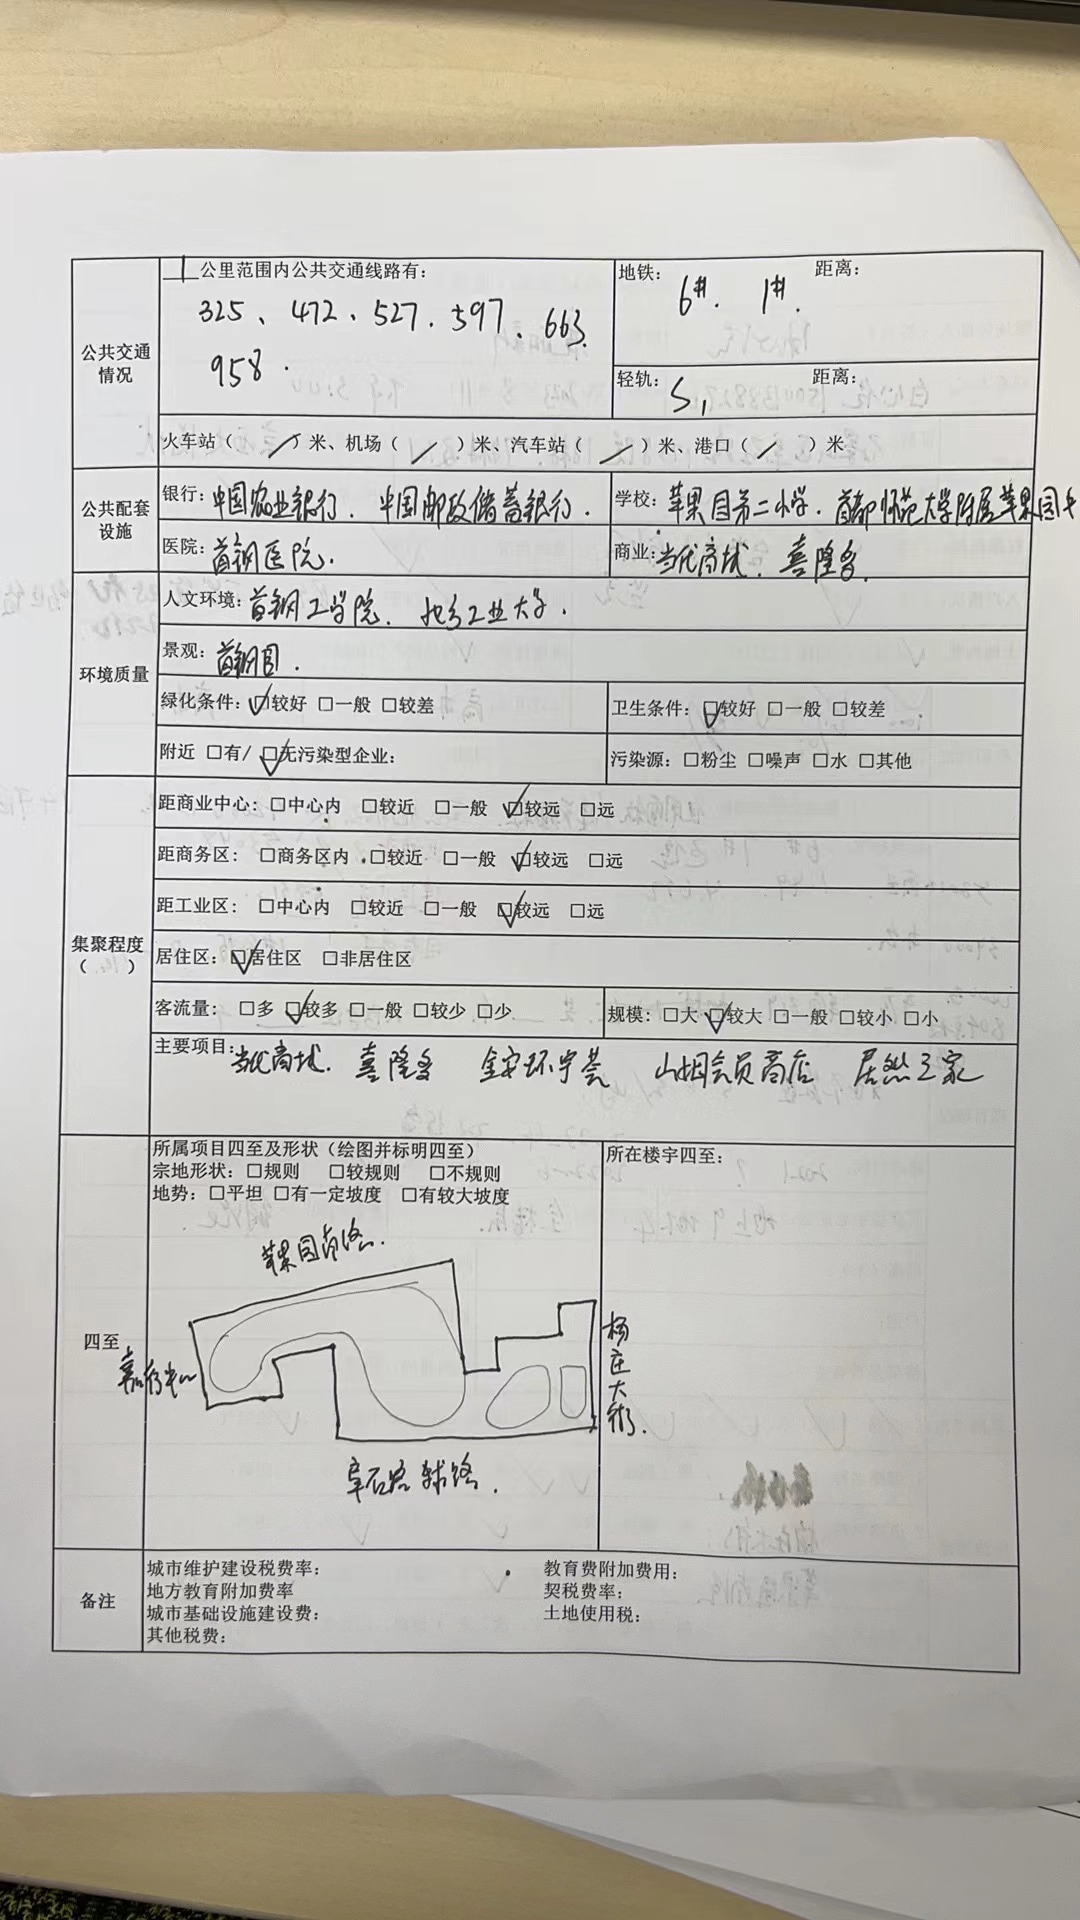 公共交通情况
1 公里范围内公共交通线路有：
325、472、527、597、663、
958.
地铁： 6#. 1#. 距离：
轻轨： S1 距离：
火车站（ / ）米、机场（ / ）米、汽车站（ / ）米、港口（ / ）米
公共配套设施
银行：中国农业银行．中国邮政储蓄银行．
学校：苹果园第二小学．首都师范大学附属苹果园中
医院：首钢医院．
商业：当代商城．喜隆多．
环境质量
人文环境：首钢工学院．北方工业大学．
景观：首钢园．
绿化条件：☑较好 □一般 □较差
卫生条件：☑较好 □一般 □较差
附近 □有/☑无污染型企业：
污染源：□粉尘 □噪声 □水 □其他
集聚程度
（ ）
距商业中心：□中心内 □较近 □一般 ☑较远 □远
距商务区：□商务区内 □较近 □一般 ☑较远 □远
距工业区：□中心内 □较近 □一般 ☑较远 □远
居住区：☑居住区 □非居住区
客流量：□多 ☑较多 □一般 □较少 □少
规模：□大 ☑较大 □一般 □较小 □小
主要项目：当代商城．喜隆多 金安环宇荟 山姆会员商店 居然之家
四至
所属项目四至及形状（绘图并标明四至）
宗地形状：□规则 □较规则 □不规则
地势：□平坦 □有一定坡度 □有较大坡度
所在楼宇四至：
苹果园南路．
杨庄大街．
阜石路辅路．
备注
城市维护建设税费率：
教育费附加费用：
地方教育附加费率
契税费率：
城市基础设施建设费：
土地使用税：
其他税费：